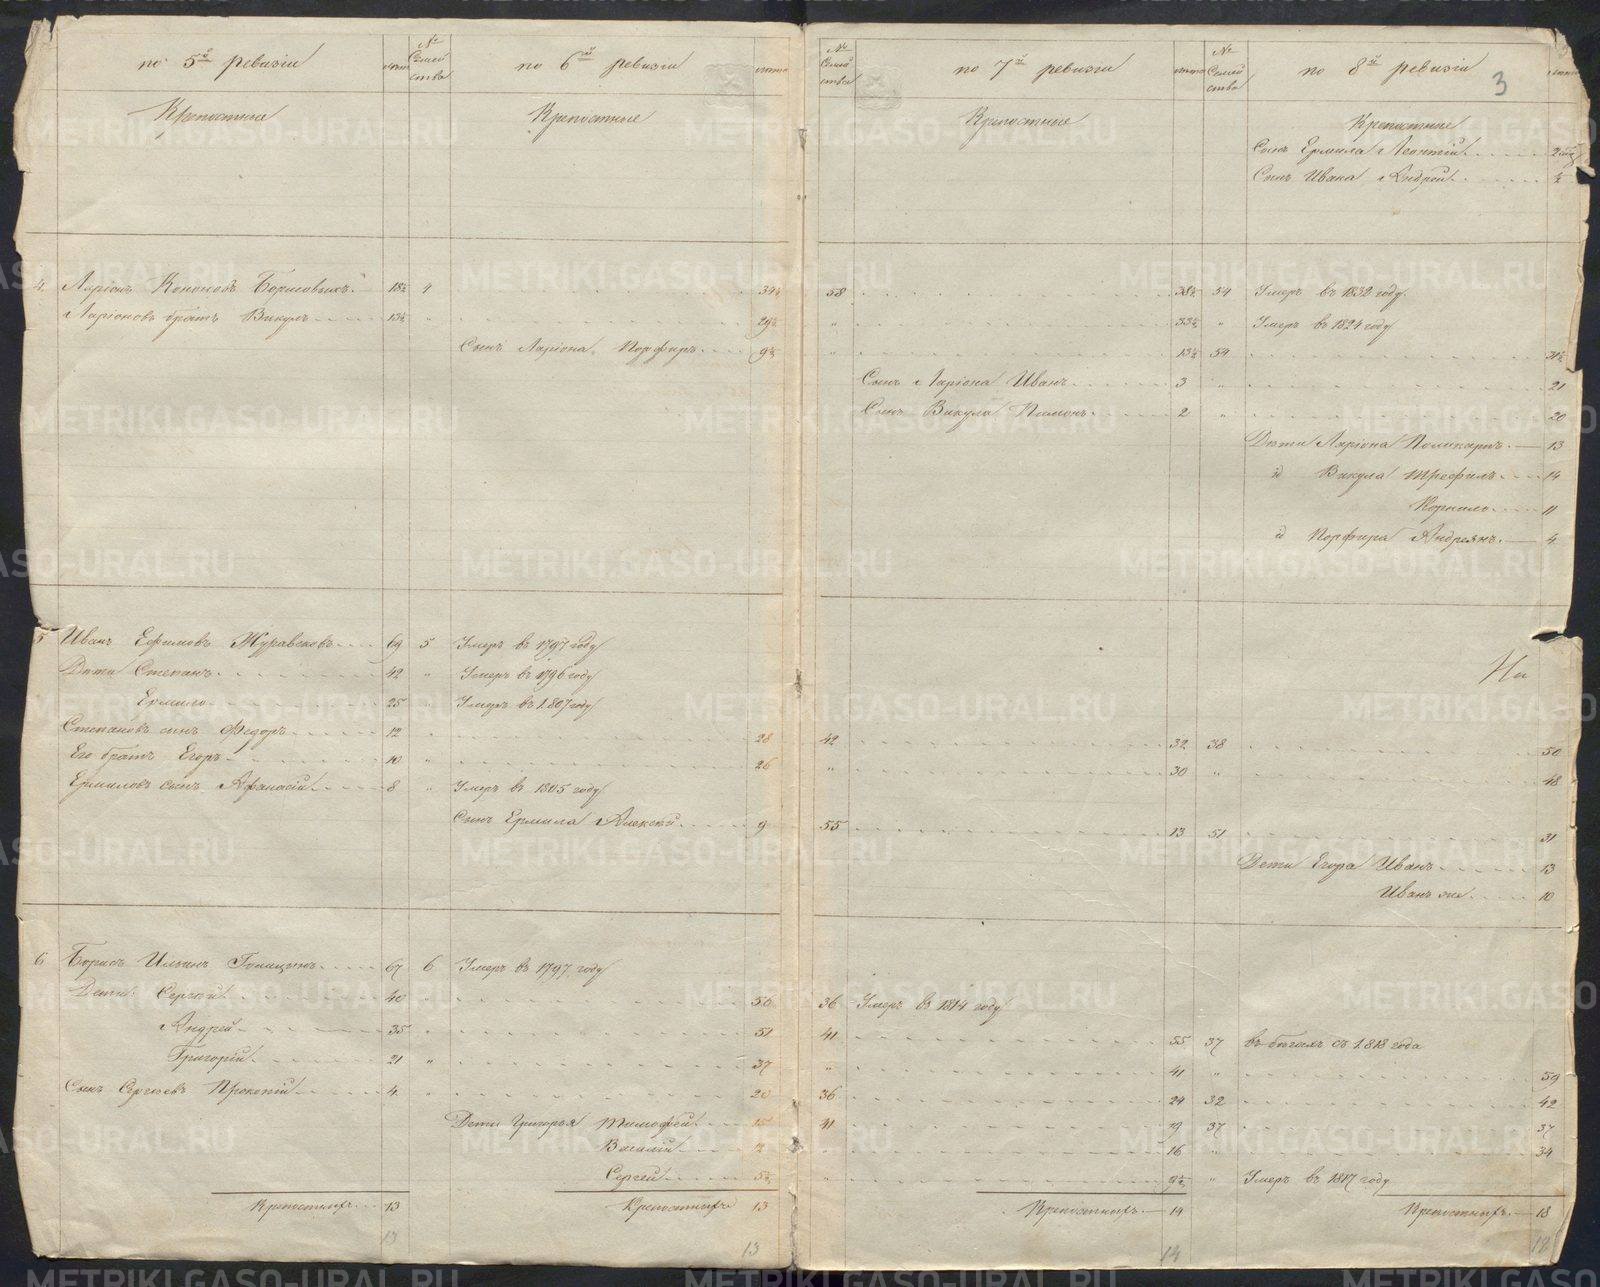 по 5й ревизіи лета № Семейства по 6й ревизіи лета № Семейства по 7й ревизіи лета № Семейства по 8й ревизіи лета
3
Крепостные Крепостные Крепостные Крепостные
Сынъ Ермила Леонтій 2
Сынъ Ивана Андрей ½
4 Ларіонъ Кононовъ 18½ 4 34½ 58 38½ 54 Умеръ въ 1832 году
Ларіоновъ братъ Викулъ 13½ " 29½ " 33½ " Умеръ въ 1824 году
Сынъ Ларіона Порфиръ 9½ " 13½ 54 31½
Сынъ Ларіона Иванъ 3 " 21
Сынъ Викула Памонъ 2 " 20
Дети Ларіона Поликарпъ 13
и Викула Трефилъ 14
Корнило 11
и Порфира Андреянъ 4
5 Иванъ Ефимовъ Журавсковъ 69 5 Умеръ въ 1797 году
Дети Степанъ 42 " Умеръ въ 1796 году
Ермило 25 " Умеръ въ 1807 году
Степановъ сынъ Федоръ 12 28 42 32 38 50
Его братъ Егоръ 10 " 26 " 30 " 48
Ермиловъ сынъ Афанасій 8 " Умеръ въ 1805 году
Сынъ Ермила Алексей 9 55 13 51 31
Дети Егора Иванъ 13
Иванъ же 10
6 Борисъ Ильинъ Голицынъ 67 6 Умеръ въ 1797 году
Дети: Сергей 40 56 36 Умеръ въ 1814 году
Андрей 35 51 41 55 37 въ бегахъ съ 1818 года
Григорій 21 " 37 " 41 " 59
Сынъ Сергеевъ Прокопій 4 20 36 24 32 42
Дети Григорья Тимофей 15 41 19 37 37
Василій 12 " 16 " 34
Сергей 5½ " 9½ " Умеръ въ 1817 году
Крепостныхъ 13 Крепостныхъ 13 Крепостныхъ 14 Крепостныхъ 18
13 13 14 18
METRIKI.GASO-URAL.RU